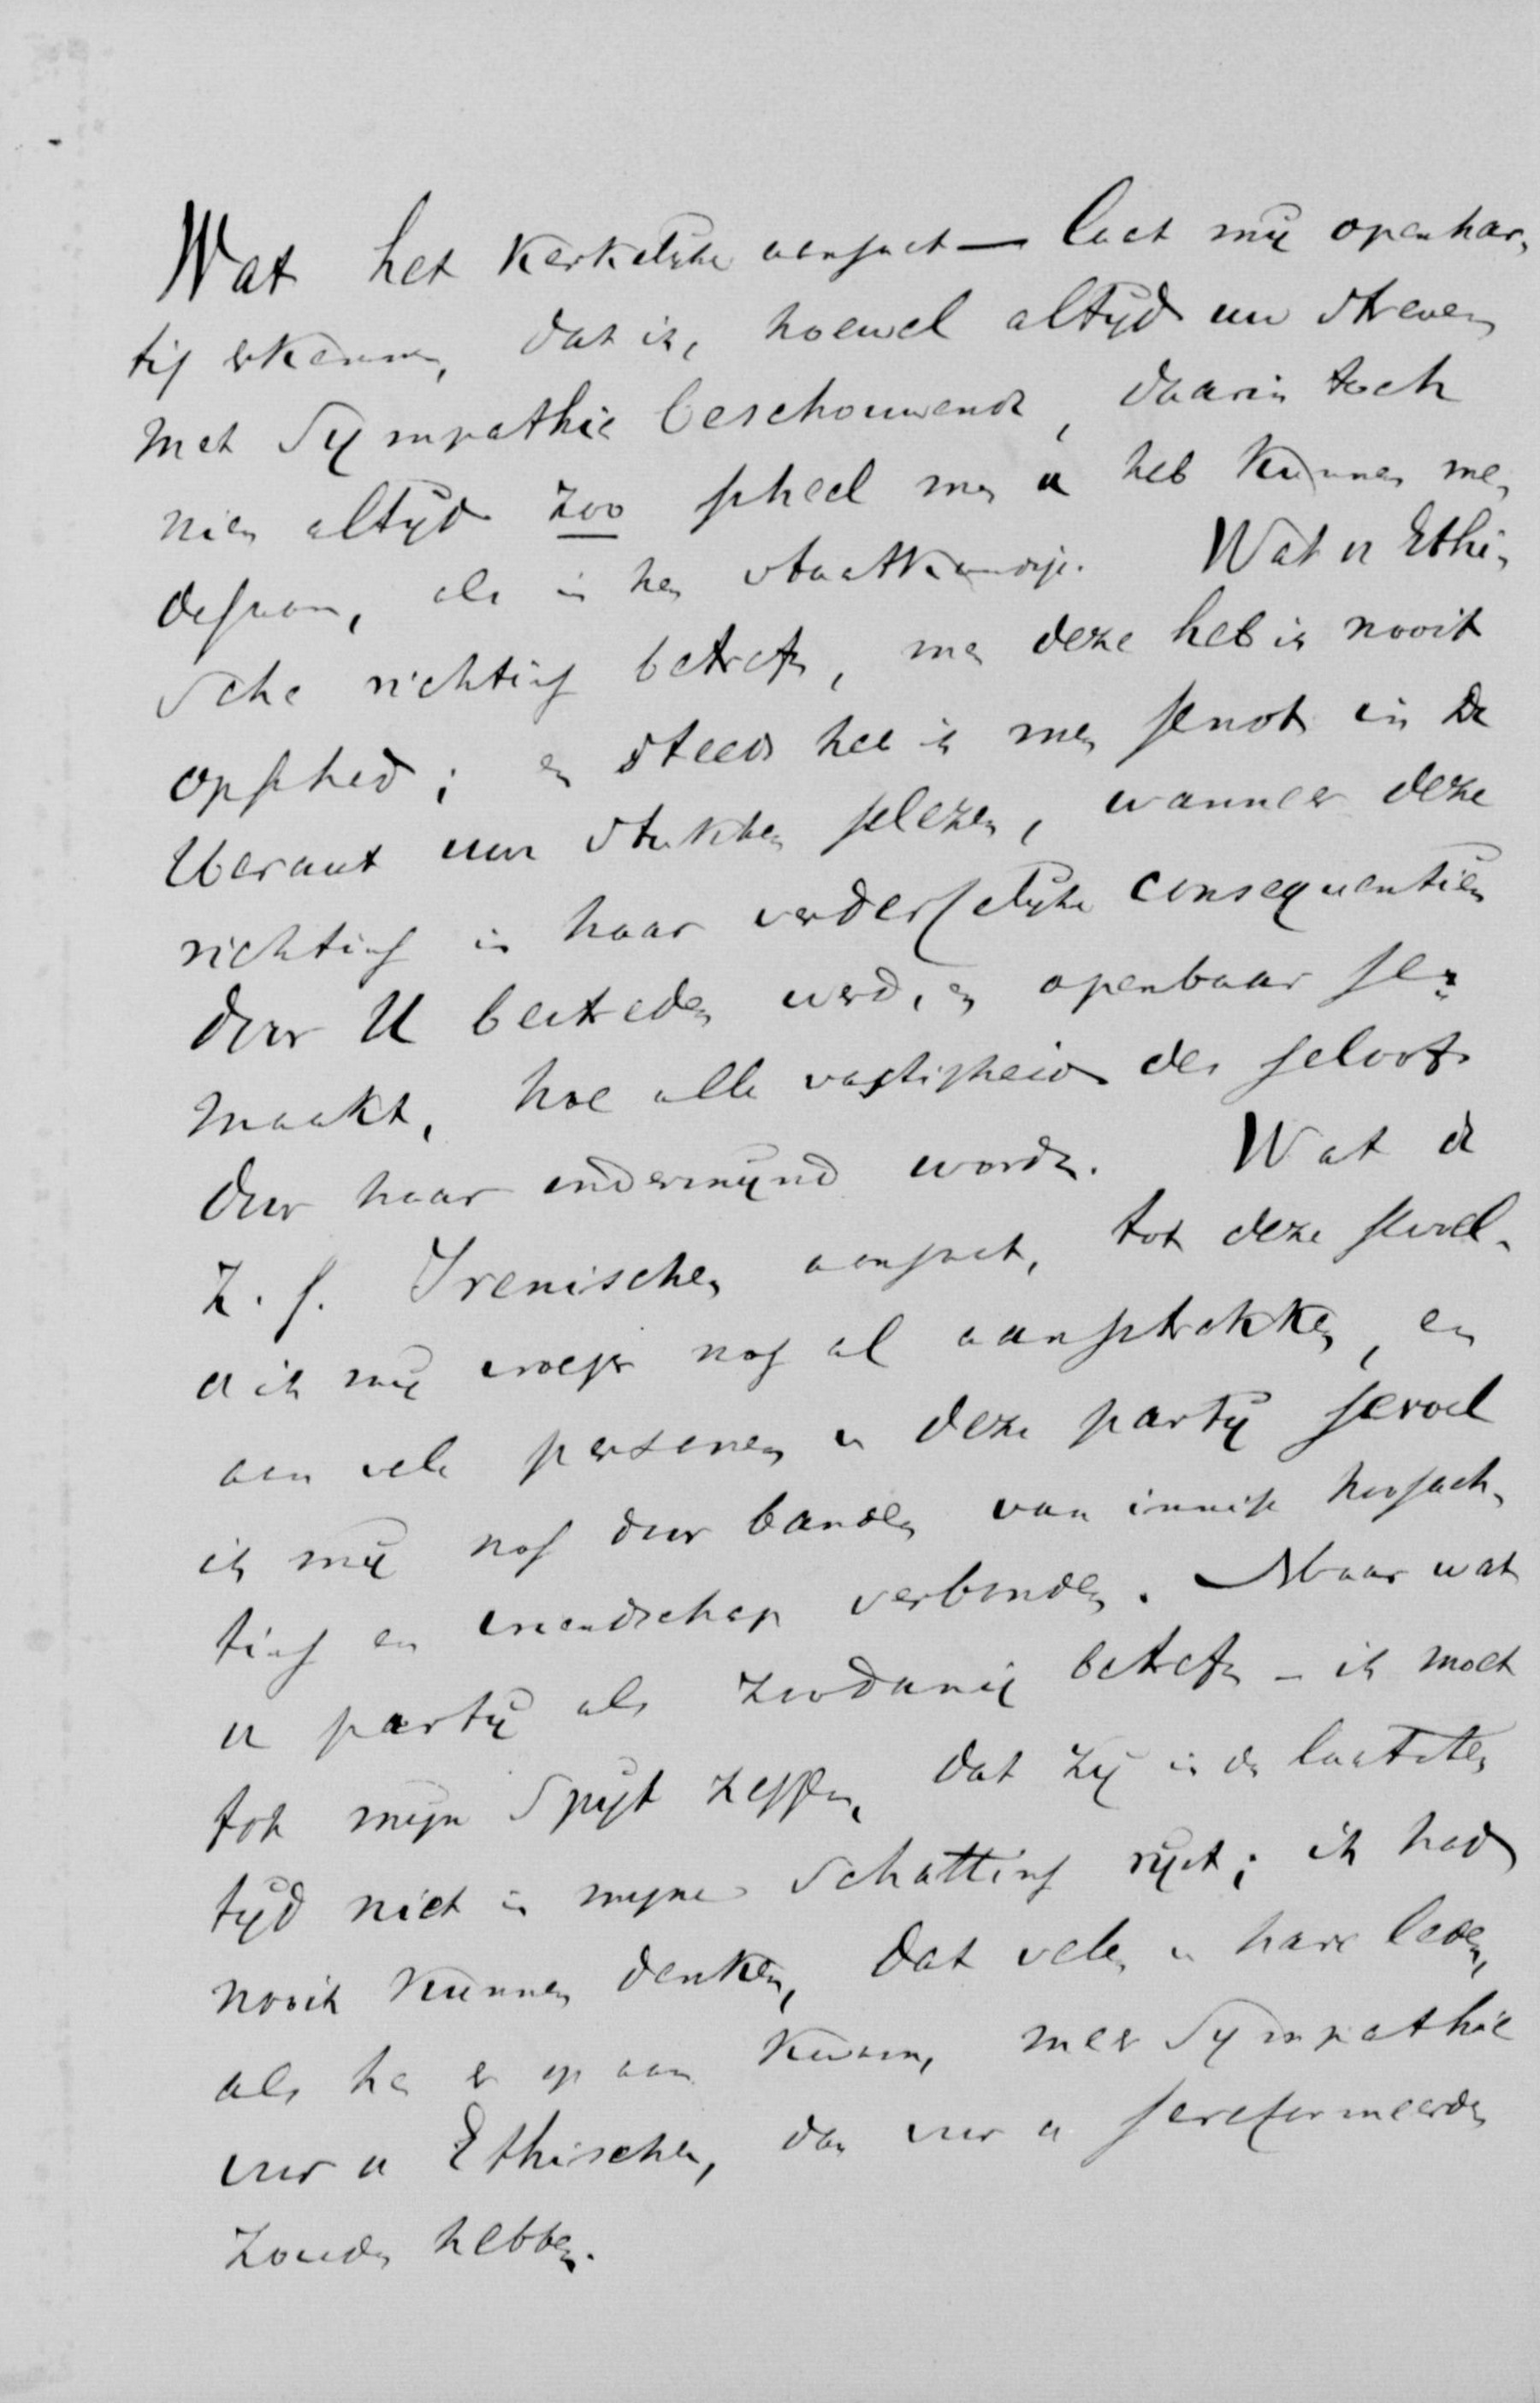 Wat het kerkelijke aangaat — laat mij openhar-
tig erkennen, dat ik, hoewel altijd uw streven
met Sympathie beschouwende, daarin toch
niet altijd zoo geheel met u heb kunnen me-
degaan, als in het staatkundige. Wat de Ethi-
sche richting betreft, met deze heb ik nooit
opgehad; en steeds heb ik met genot in De
Heraut uwe stukken gelezen, wanneer deze
richting in haar verderfelijke consequentien
door U bestreden werd, en openbaar ge-
maakt, hoe alle vastigheid des geloofs
door haar ondermijnd wordt. Wat de
Z. g. Irenischen aangaat, tot deze gevoel-
de ik mij vroeger nog al aangetrokken, en
aan vele personen van deze partij gevoel
ik mij nog door banden van innige hoogach-
ting en vriendschap verbonden. Maar wat
de partij als zoodanig betreft – ik moet
tot mijn Spijt zeggen, dat zij in den laatsten
tijd niet in mijne Schatting rijst; ik had
nooit kunnen denken, dat velen van hare leden,
als het er op aan kwam, meer Sympathie
voor de Ethischen, dan voor de gereformeerden
zouden hebben.